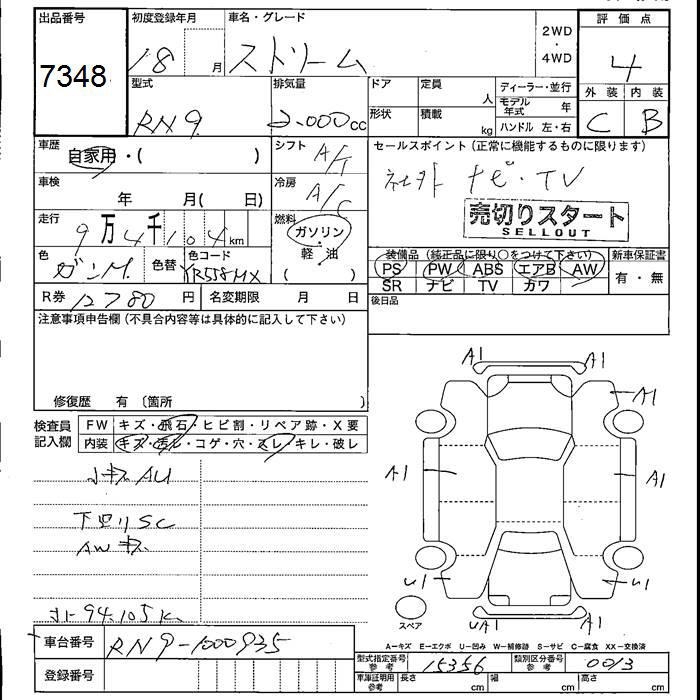 出品番号
7348
初度登録年月
18 月
車名・グレード
ストリーム
2WD
4WD
評価点
4
外装 内装
C B
型式
RN9
排気量
2.000cc
ドア
形状
定員
人
積載
kg
ディーラー・並行
モデル年式 年
ハンドル 左・右
車歴
自家用・( )
シフト
A/T
車検
年 月( 日)
冷房
A/C
走行
9万4千104km
燃料
ガソリン・軽油
( )
色
ガンM
色替
色コード
YR558MX
R券 12780円
名変期限 月 日
セールスポイント(正常に機能するものに限ります)
社外 ナビ・TV
売切りスタート
SELLOUT
装備品(純正品に限り〇をつけて下さい)
PS PW ABS エアB AW
SR ナビ TV カワ
新車保証書
有・無
後日品
注意事項申告欄(不具合内容等は具体的に記入して下さい)
修復歴 有〔箇所 〕
検査員記入欄
FW キズ・飛石・ヒビ割・リペア跡・X要
内装 キズ・汚レ・コゲ・穴・スレ・キレ・破レ
小キズ AU
下回りSC
AWキズ
94.105K
車台番号 RN9-1000935
登録番号
A1 A1
A1
A1 A1
U1 U1
UA1 A1
スペア
A―キズ E―エクボ U―凹み W―補修跡 S―サビ C―腐食 XX―交換済
型式指定番号 参考 15356
類別区分番号 参考 0013
車庫証明用 参考 長さ cm 幅 cm 高さ cm